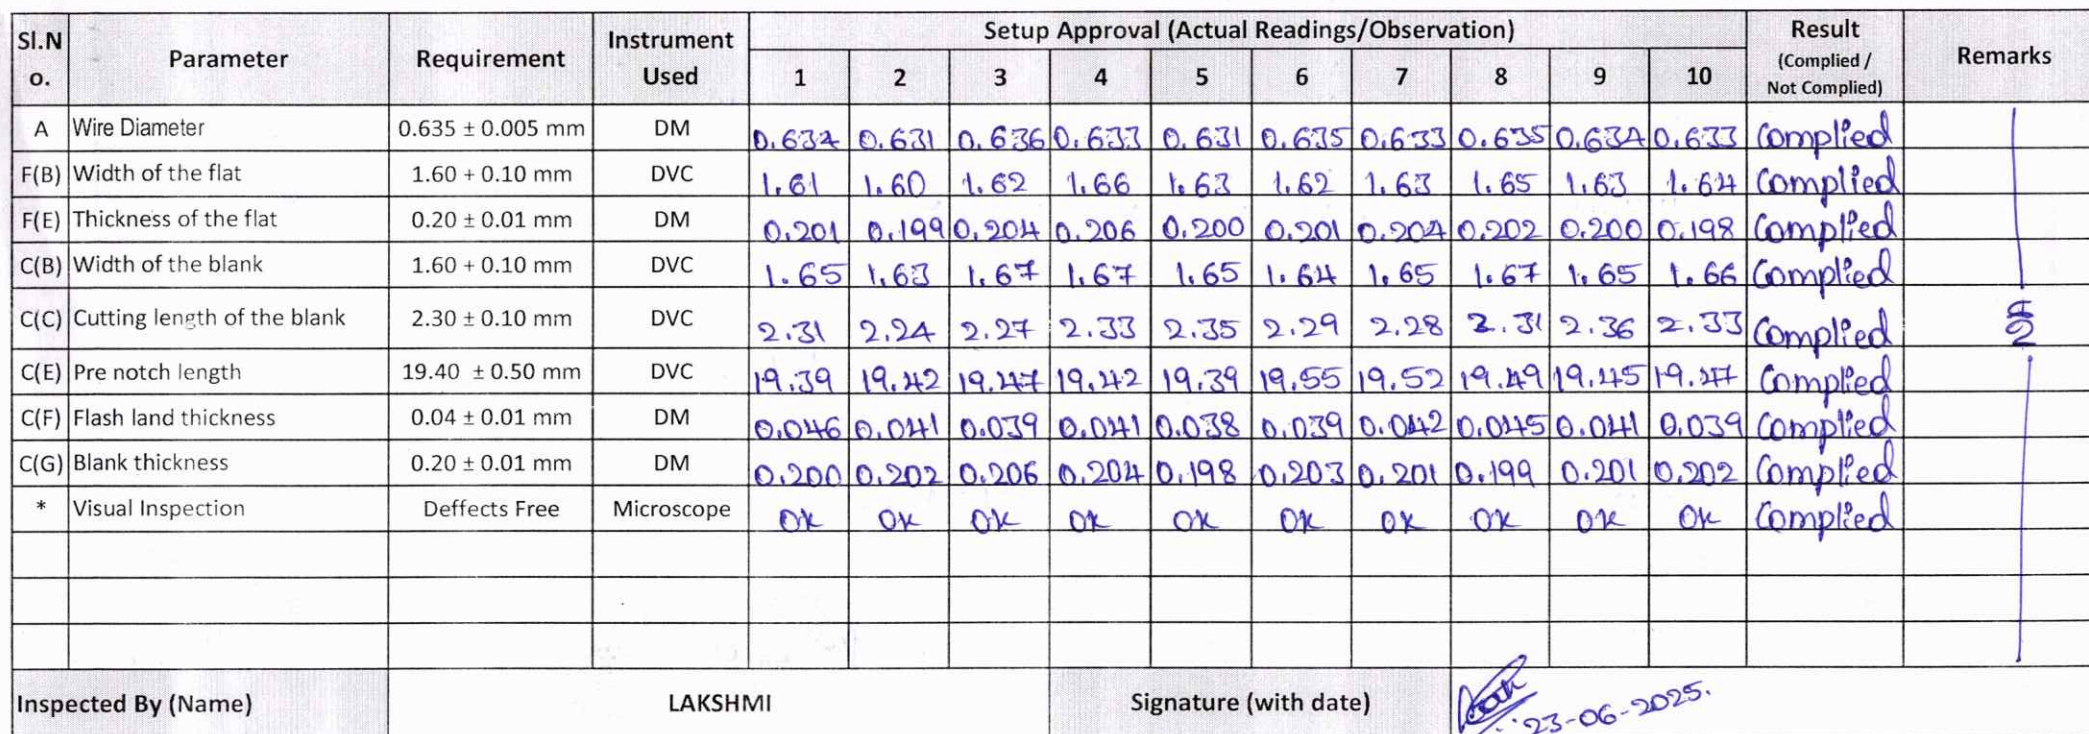 Sl.No. Parameter Requirement Instrument Used Setup Approval (Actual Readings/Observation) Result (Complied / Not Complied) Remarks
1 2 3 4 5 6 7 8 9 10
A Wire Diameter 0.635 ± 0.005 mm DM 0.634 0.631 0.636 0.633 0.631 0.635 0.633 0.635 0.634 0.633 Complied
F(B) Width of the flat 1.60 + 0.10 mm DVC 1.61 1.60 1.62 1.66 1.63 1.62 1.63 1.65 1.63 1.64 Complied
F(E) Thickness of the flat 0.20 ± 0.01 mm DM 0.201 0.199 0.204 0.206 0.200 0.201 0.204 0.202 0.200 0.198 Complied
C(B) Width of the blank 1.60 + 0.10 mm DVC 1.65 1.63 1.67 1.67 1.65 1.64 1.65 1.67 1.65 1.66 Complied
C(C) Cutting length of the blank 2.30 ± 0.10 mm DVC 2.31 2.24 2.27 2.33 2.35 2.29 2.28 2.31 2.36 2.33 Complied
C(E) Pre notch length 19.40 ± 0.50 mm DVC 19.39 19.42 19.47 19.42 19.39 19.55 19.52 19.49 19.45 19.47 Complied
C(F) Flash land thickness 0.04 ± 0.01 mm DM 0.046 0.041 0.039 0.041 0.038 0.039 0.042 0.045 0.041 0.039 Complied
C(G) Blank thickness 0.20 ± 0.01 mm DM 0.200 0.202 0.206 0.204 0.198 0.203 0.201 0.199 0.201 0.202 Complied
* Visual Inspection Deffects Free Microscope OK OK OK OK OK OK OK OK OK OK Complied
Inspected By (Name) LAKSHMI Signature (with date) 23-06-2025.